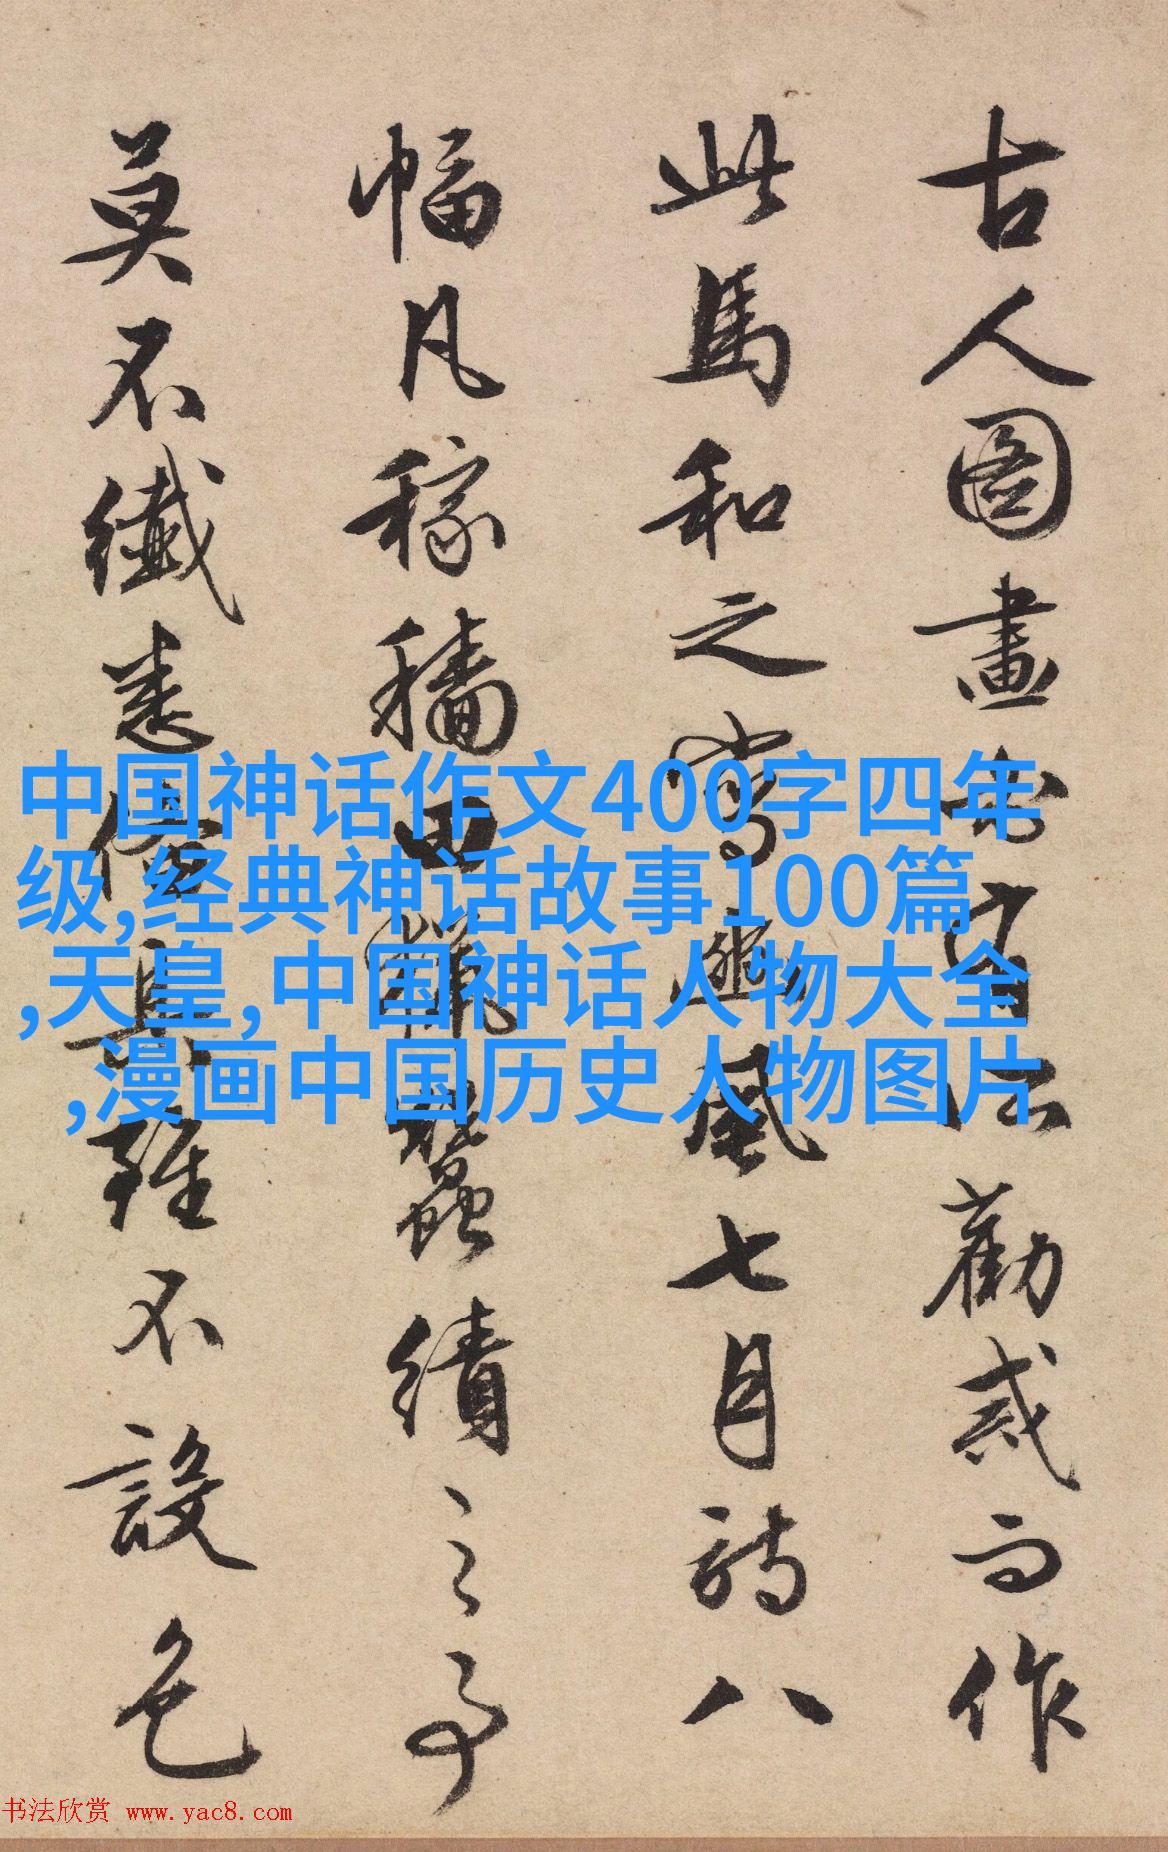 古人圖畫必有所勸戒而作
此馬和之寫豳風七月詩八
幅凡稼穡田獵蠶績之事
莫不纖悉備具雖不設色
中国神话作文400字四年
级,经典神话故事100篇
,天皇,中国神话人物大全
,漫画中国历史人物图片
书法欣赏 www.yac8.com